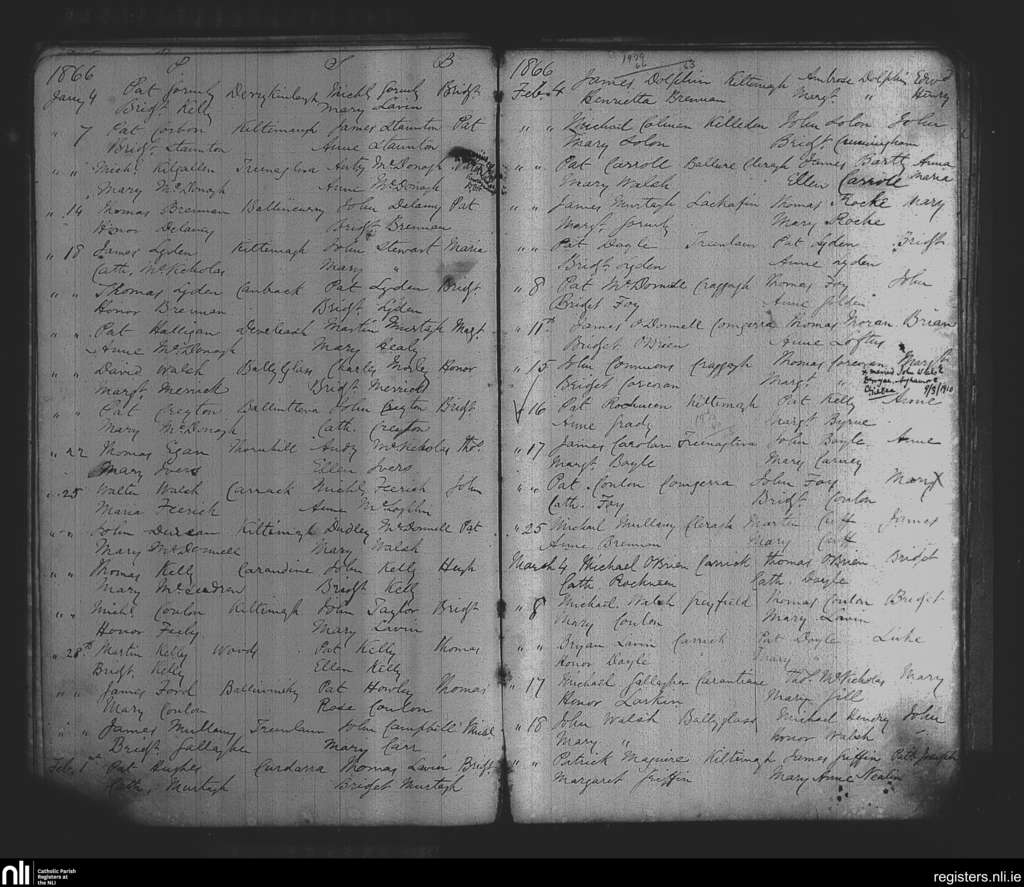 1866 P S B
Jany 4 Pat Gormly Derrykinlough Michl Gormly Bridgt
Bridgt Kelly Mary Lavin
" 7 Pat Kiltimagh James Staunton Pat
Bridgt Staunton Anne Staunton
" " Michl Kilgallen Treenagleva Anty McDonagh
Mary McDonagh Anne McDonagh
" 14 Thomas Brennan Ballincurry John Delaney Pat
Honor Delaney Bridgt Brennan
" 18 James Lyden Kiltimagh John Stewart Maria
Cath. McNicholas Mary "
" " Thomas Lyden Canbrack Pat Lyden Bridgt
Honor Brennan Bridgt Lyden
" " Pat Halligan Martin Murtagh Margt
Anne McDonagh Mary Healy
" " David Walsh Ballyglass Charles Honor
Margt Merrick Bridgt Merrick
" " Pat Creyton John Creyton Bridgt
Mary McDonagh Cath. Creyton
" 22 Thomas Egan Thornhill Andy McNicholas Thos
Mary Ivers Ellen Ivers
" 25 Walter Walsh Carrack Michl Feerick John
Maria Feerick Anne
" " John Duncan Kiltimagh Dudley McDonnell Pat
Mary McDonnell Mary Walsh
" " Thomas Kelly Carandine John Kelly Hugh
Mary Bridgt Kelly
" " Michl Conlon Kiltimagh John Taylor Bridgt
Honor Feely Mary Lavin
" 28th Martin Kelly Woods Pat Kelly Thomas
Bridgt Kelly Ellen Kelly
" " James Ford Pat Howley Thomas
Mary Conlon Rose Conlon
" " James Mullany Treenlaum John Campbell Michl
Bridgt Gallagher Mary Carr
Feby 1st Pat Hughes Curdarra Thomas Lavin Bridgt
Cath. Murtagh Bridget Murtagh
1866
Feb. 4 James Dolphin Kiltimagh Ambrose Dolphin Edwd
Henrietta Brennan Margt " Henry
" " Michael Colman Killeden John Solon John
Mary Solon Bridgt Cunningham
" " Pat Carroll James Bartt Anna
Mary Walsh Ellen Carroll Maria
" " James Murtagh Lachafin Thomas Roche Mary
Margt Gormly Mary Roche
" " Pat Doyle Treenlaum Pat Lyden Bridgt
Bridgt Lyden Anne Lyden
" 8 Pat McDonnell Craggagh Thomas Foy John
Bridget Foy Anne
" 11th James O'Donnell Comgerra Thomas Moran Brian
Bridget O'Brien Anne Loftus
" 15 John Commons Craggagh Thomas Corcoran Margt
Bridget Corcoran Margt "
x married John
9/3/1910
" 16 Pat Rochneen Kiltimagh Pat Kelly Anne
Anne Grady Margt Byrne
" 17 James Carolan Treenagleva John Boyle Anne
Margt Boyle Mary Carney
" " Pat Conlon Comgerra John Foy Mary
Cath. Foy Bridgt Conlon
" 25 Michael Mullany Clerash Martin James
Anne Brennan Mary
March 4 Michael O'Brien Carrick Thomas O'Brien Bridget
Cath Rochneen Cath. Doyle
" 8 Michael Walsh Greyfield Thomas Conlon Bridget
Mary Conlon Mary Lavin
" " Bryan Lavin Carrick Pat Doyle Luke
Honor Doyle Mary "
" 17 Michael Gallagher Carantine Thos McNicholas Mary
Honor Larkin Mary Gill
" 18 John Walsh Ballyglass Michael Hendry John
Mary " Honor Walsh
" " Patrick Maguire Kiltimagh James Griffin Patk Joseph
Margaret Griffin Mary Anne
nli
Catholic Parish
Registers at
the NLI
registers.nli.ie